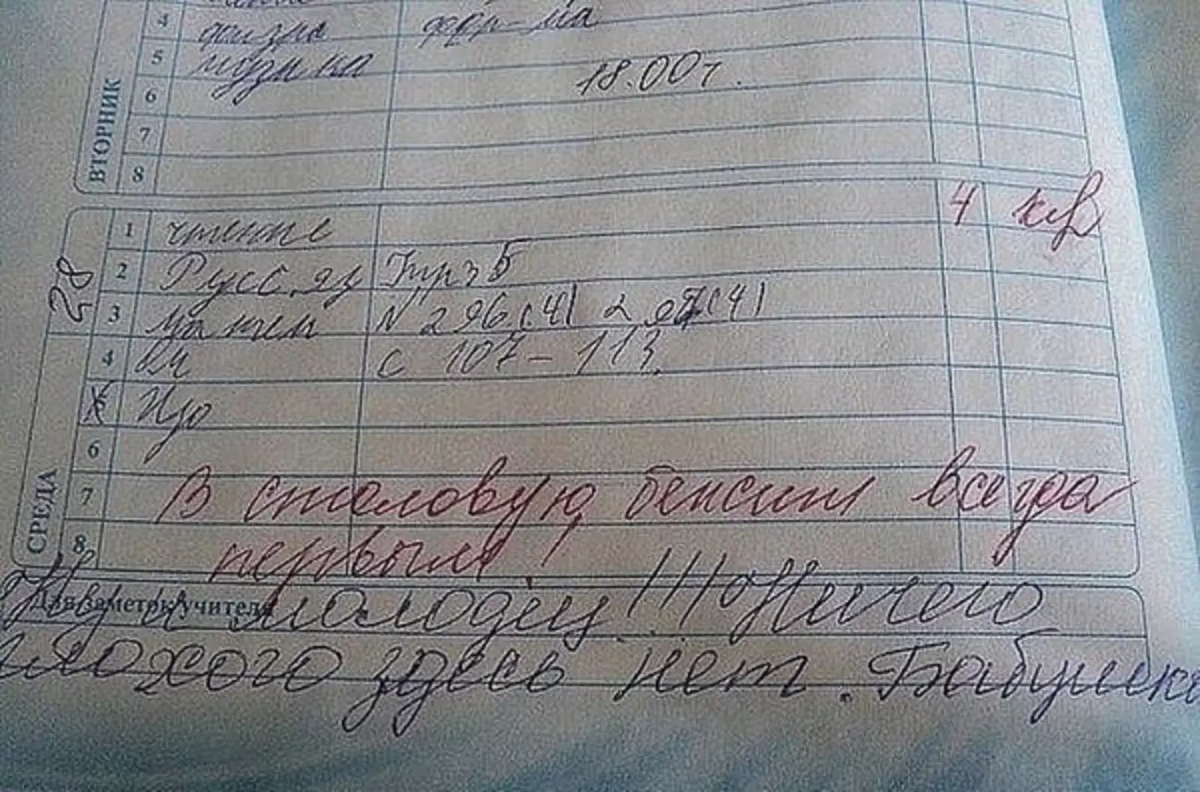 4 физра фор-ма
5 музыка 18.00г.
6
7
8
ВТОРНИК
1 чтение 4
2 Русс.яз Упр 5
3 матем N 296(4) 297(4)
4 с 107-113.
Изо
6
7 В столовую бежит всегда
8 первым!
28
СРЕДА
Для заметок учителя
Ну и молодец!!! Ничего
плохого здесь нет. Бабушка